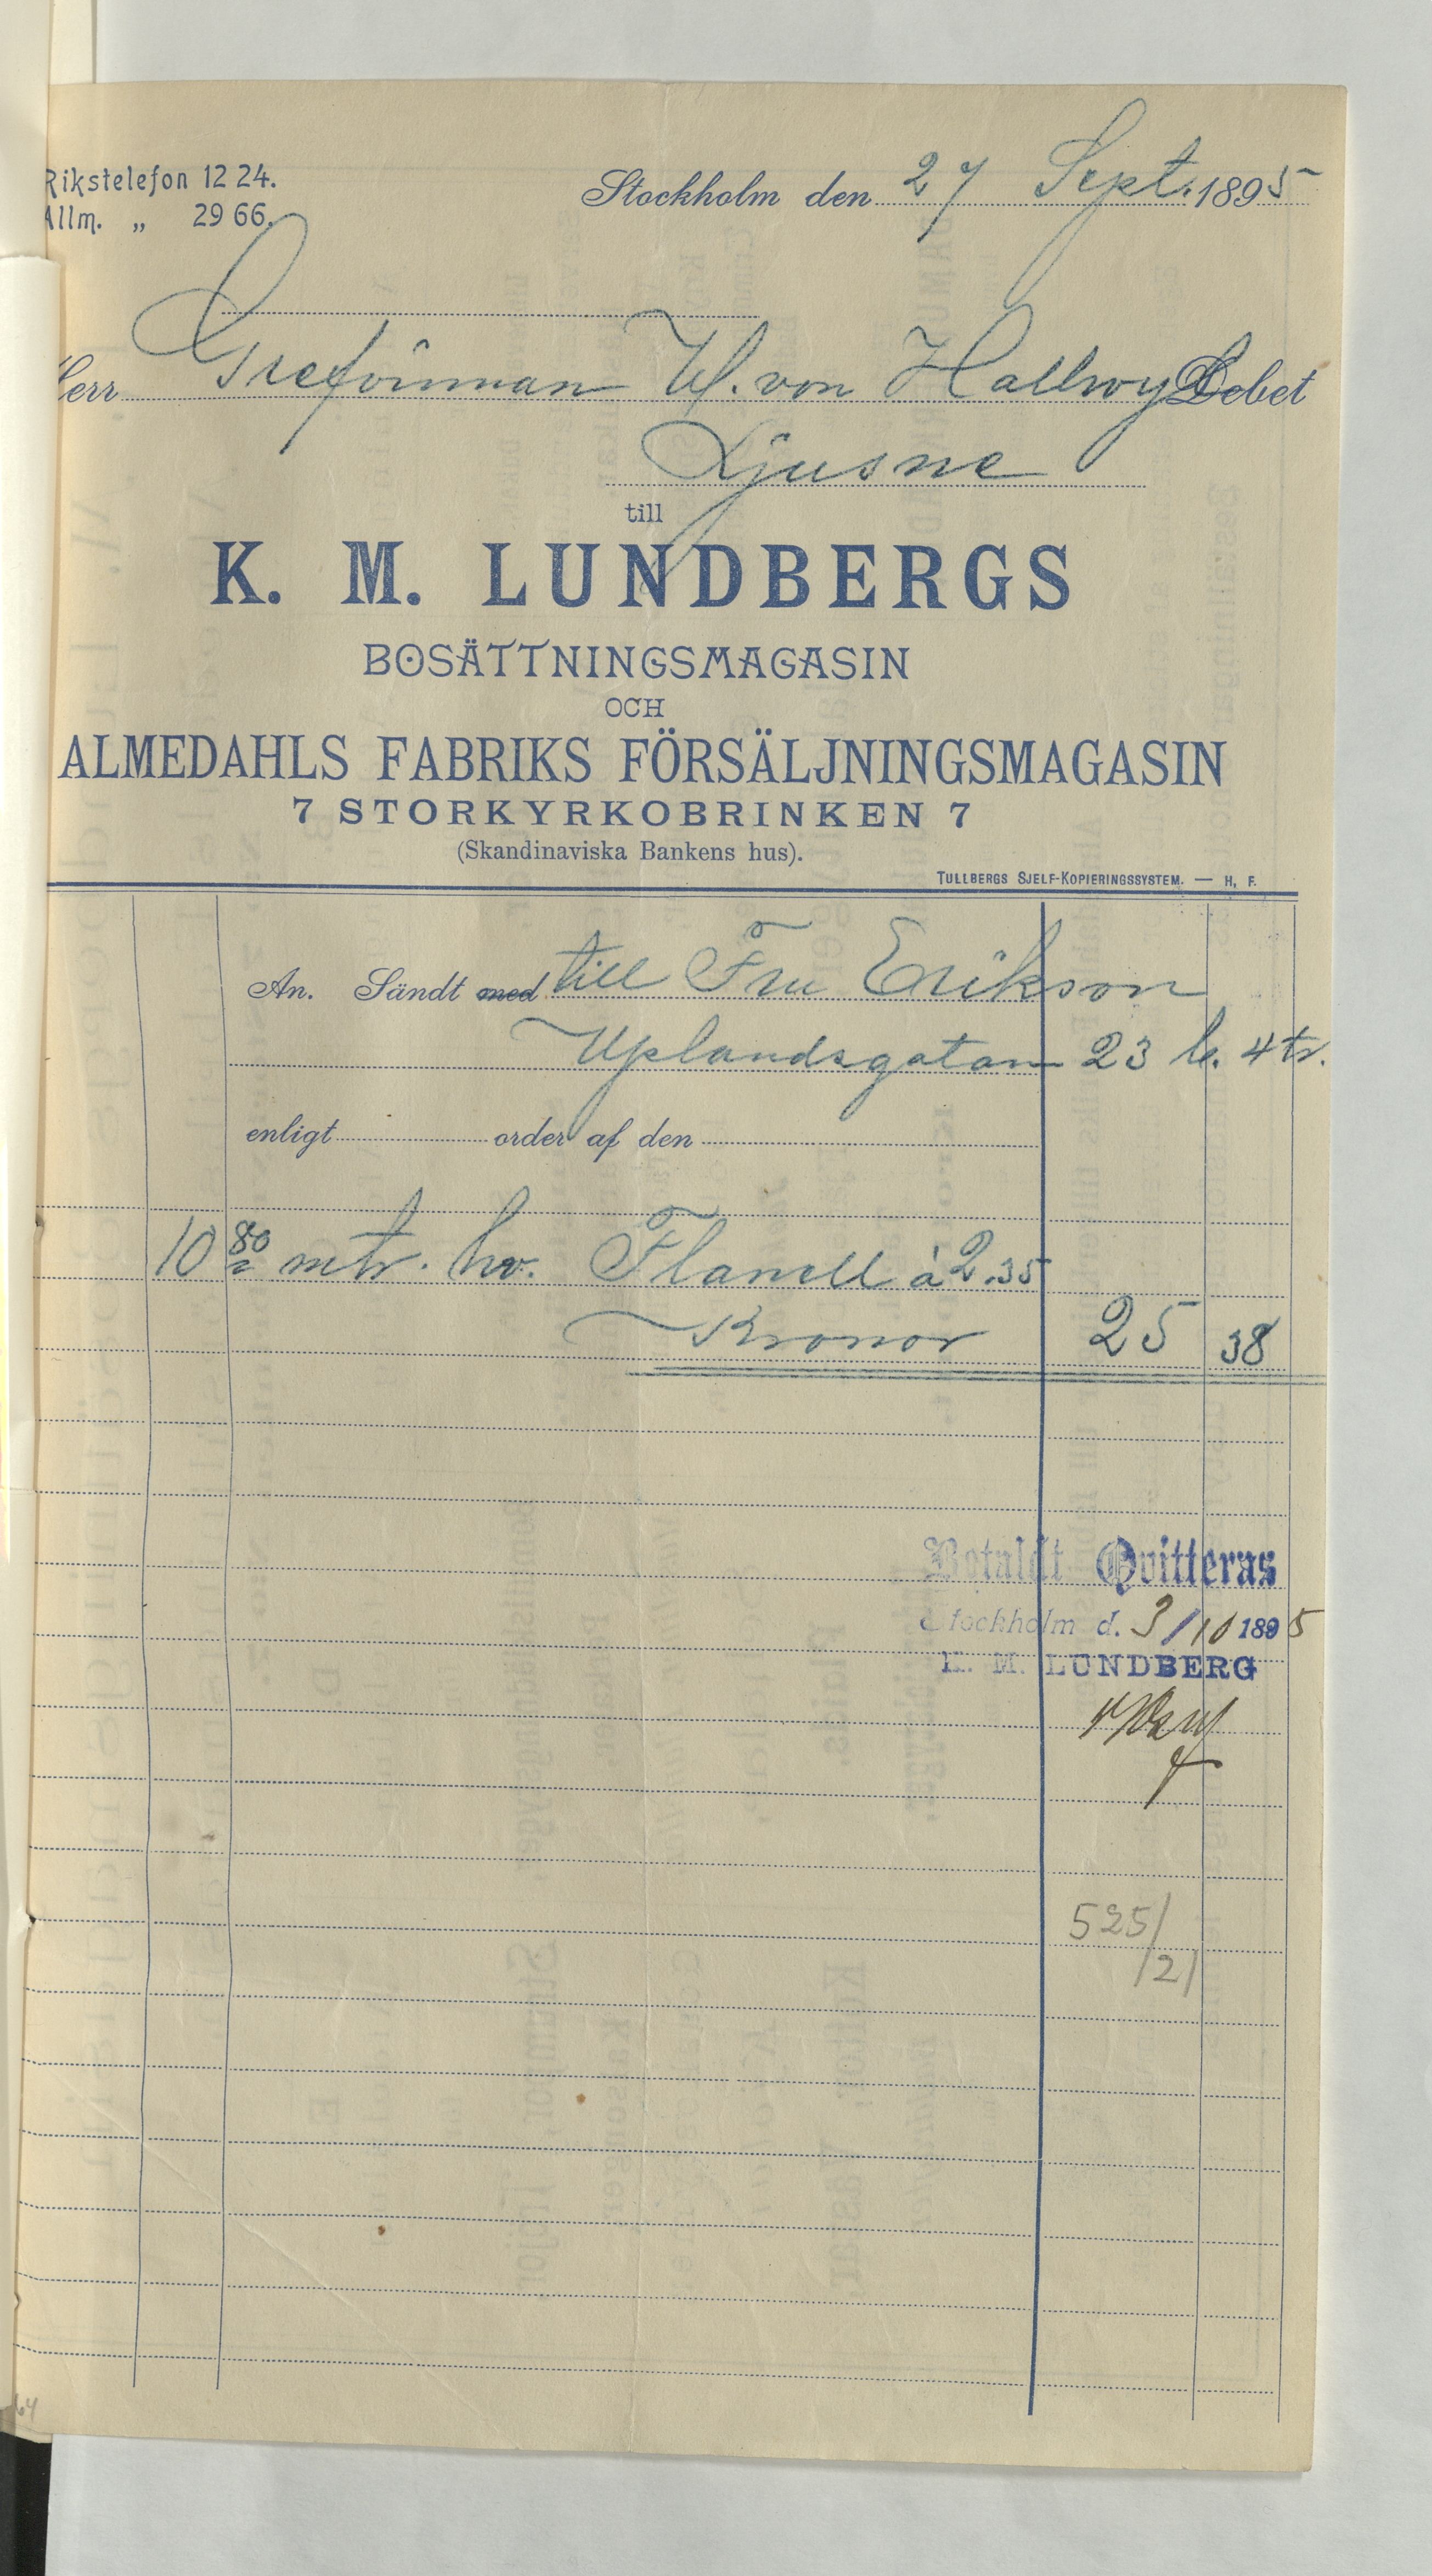 Rikstelefon 12 24.
Allm. „ 29 66.
Stockholm den 27 Sept. 1895
Herr Grefvinnan W. von Hallwyl Debet
Ljusne
till
K. M. LUNDBERGS
BOSÄTTNINGSMAGASIN
OCH
ALMEDAHLS FABRIKS FÖRSÄLJNINGSMAGASIN
7 STORKYRKOBRINKEN 7
(Skandinaviska Bankens hus).
TULLBERGS SJELF-KOPIERINGSSYSTEM. — H. F.
An. Sändt med till Fru Erikson
Uplandsgatan 23 b. 4 tr.
enligt order af den
10 80 mtr. hv. Flanell à 2.35
Kronor 25 38
Betaldt Qvitteras
Stockholm d. 3/10 1895
K. M. LUNDBERG
525/
/21